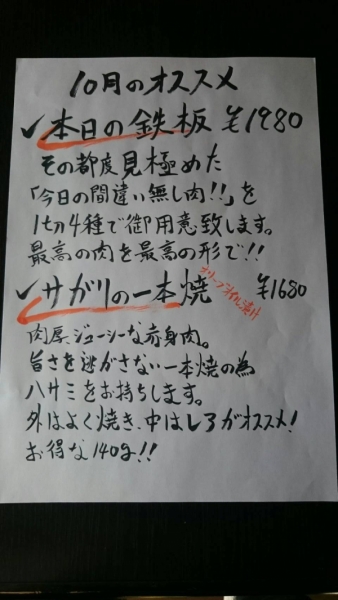 10月のオススメ
✓本日の鉄板 ¥1980
その都度見極めた
「今日の間違い無し肉!!」を
1切4種で御用意致します。
最高の肉を最高の形で!!
✓サガリの一本焼 ¥1680
オリーブオイル漬け
肉厚、ジューシーな赤身肉。
旨さを逃がさない一本焼の為
ハサミをお持ちします。
外はよく焼き、中はレアがオススメ!
お得な140g!!